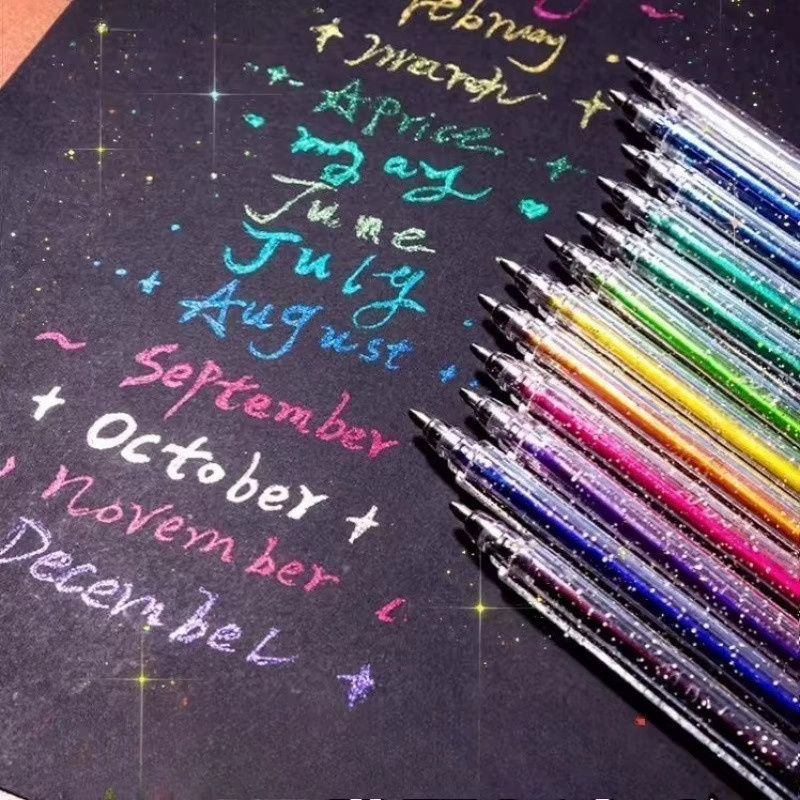 February
March
Aprice
may
June
July
August
September
October
November
December